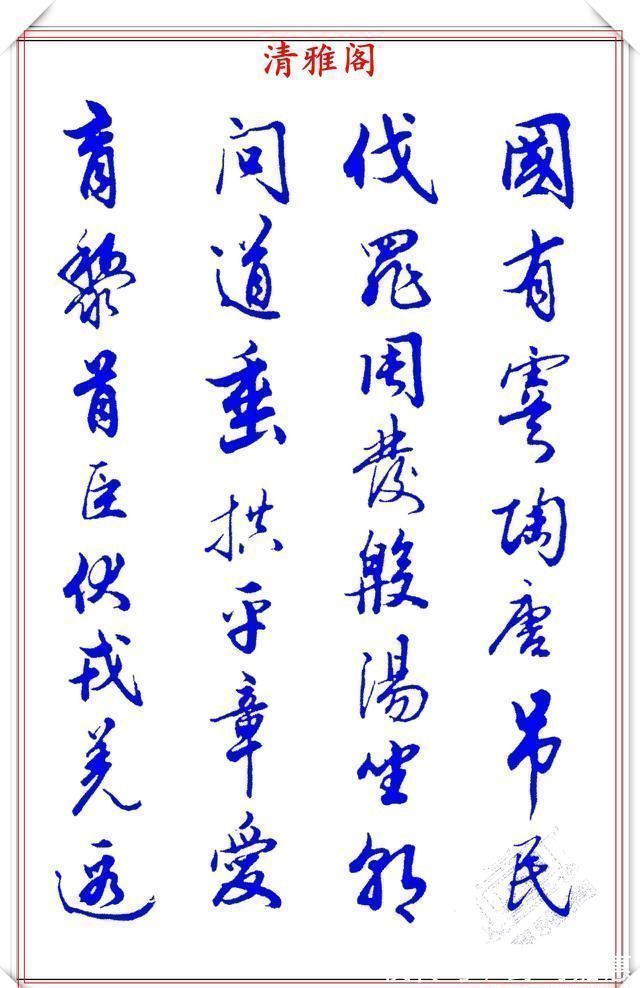 清雅阁
國有虞陶唐吊民
伐罪周發殷湯坐朝
問道垂拱平章愛
育黎首臣伏戎羌遐